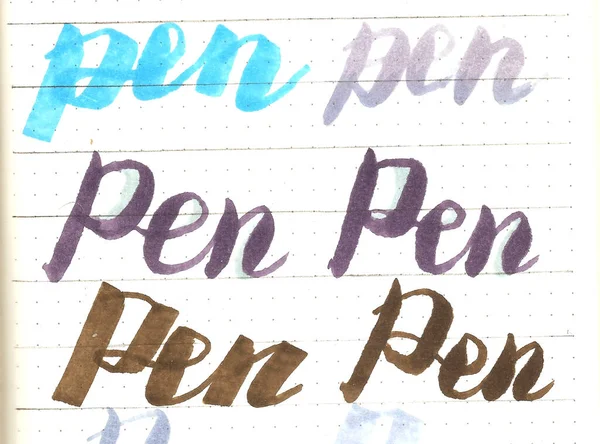 pen pen
Pen Pen
Pen Pen